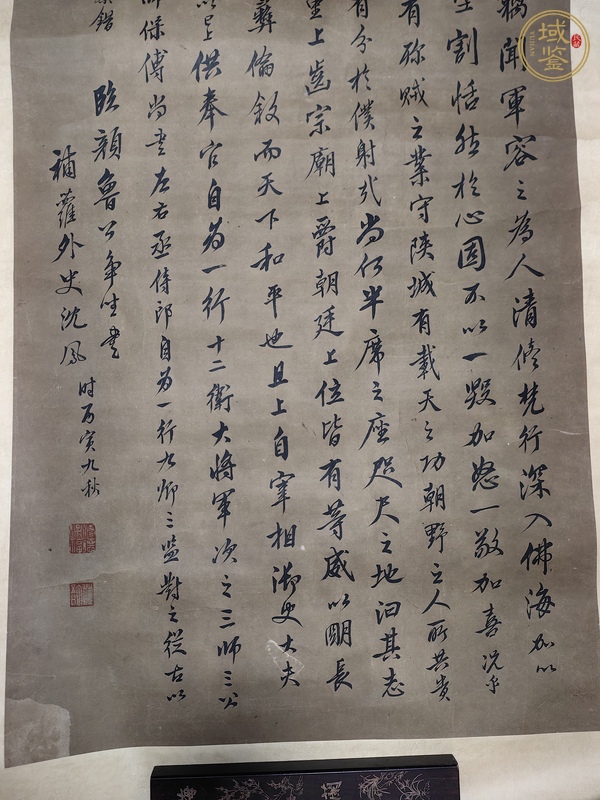 竊聞軍容之為人清修梵行深入佛海加以
割恬然於心固不以一毀加怒一敬加喜况乎
有殄賊之業守陝城有戴天之功朝野之人所共貴
有分於僕射哉尚何半席之座咫尺之地汩其志
里上齒宗廟上爵朝廷上位皆有等威以明長
彝倫敘而天下和平也且上自宰相御史大夫
以上供奉官自為一行十二衛大將軍次之三師三公
師保傅尚書左右丞侍郎自為一行九卿三監對之從古以
錯
臨顏魯公爭坐書
補蘿外史沈鳳
時丙寅九秋
域鑒